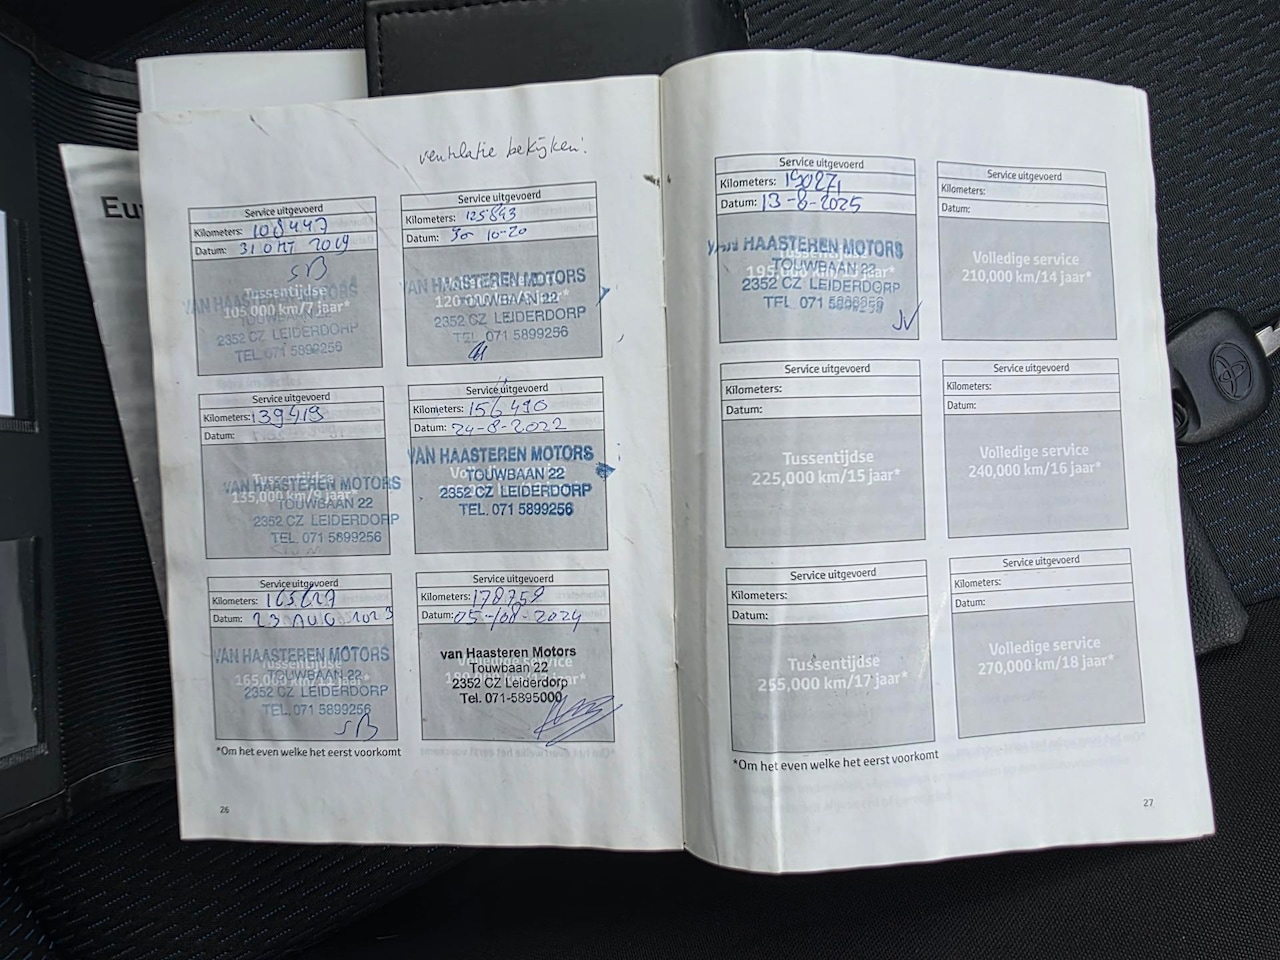 Eu
ventilatie bekijken!
Service uitgevoerd
Kilometers: 108447
Datum: 31 OKT 2019
SB
Tussentijdse
105,000 km/7 jaar*
VAN HAASTEREN MOTORS
TOUWBAAN 22
2352 CZ LEIDERDORP
TEL. 071 5899256
Service uitgevoerd
Kilometers: 125893
Datum: 30-10-20
VAN HAASTEREN MOTORS
TOUWBAAN 22
2352 CZ LEIDERDORP
TEL. 071 5899256
Service uitgevoerd
Kilometers: 139419
Datum:
Tussentijdse
135,000 km/9 jaar*
VAN HAASTEREN MOTORS
TOUWBAAN 22
2352 CZ LEIDERDORP
TEL. 071 5899256
Service uitgevoerd
Kilometers: 156490
Datum: 24-8-2022
VAN HAASTEREN MOTORS
TOUWBAAN 22
2352 CZ LEIDERDORP
TEL. 071 5899256
Service uitgevoerd
Kilometers:
Datum: 23 AUG 2023
Tussentijdse
VAN HAASTEREN MOTORS
TOUWBAAN 22
2352 CZ LEIDERDORP
TEL. 071 5899256
SB
Service uitgevoerd
Kilometers: 178758
Datum: 05-08-2024
Volledige service
van Haasteren Motors
Touwbaan 22
2352 CZ Leiderdorp
Tel. 071-5895000
*Om het even welke het eerst voorkomt
26
Service uitgevoerd
Kilometers:
Datum: 13-8-2025
Tussentijdse
VAN HAASTEREN MOTORS
TOUWBAAN 22
2352 CZ LEIDERDORP
TEL. 071
JV
Service uitgevoerd
Kilometers:
Datum:
Volledige service
210,000 km/14 jaar*
Service uitgevoerd
Kilometers:
Datum:
Tussentijdse
225,000 km/15 jaar*
Service uitgevoerd
Kilometers:
Datum:
Volledige service
240,000 km/16 jaar*
Service uitgevoerd
Kilometers:
Datum:
Tussentijdse
255,000 km/17 jaar*
Service uitgevoerd
Kilometers:
Datum:
Volledige service
270,000 km/18 jaar*
*Om het even welke het eerst voorkomt
27